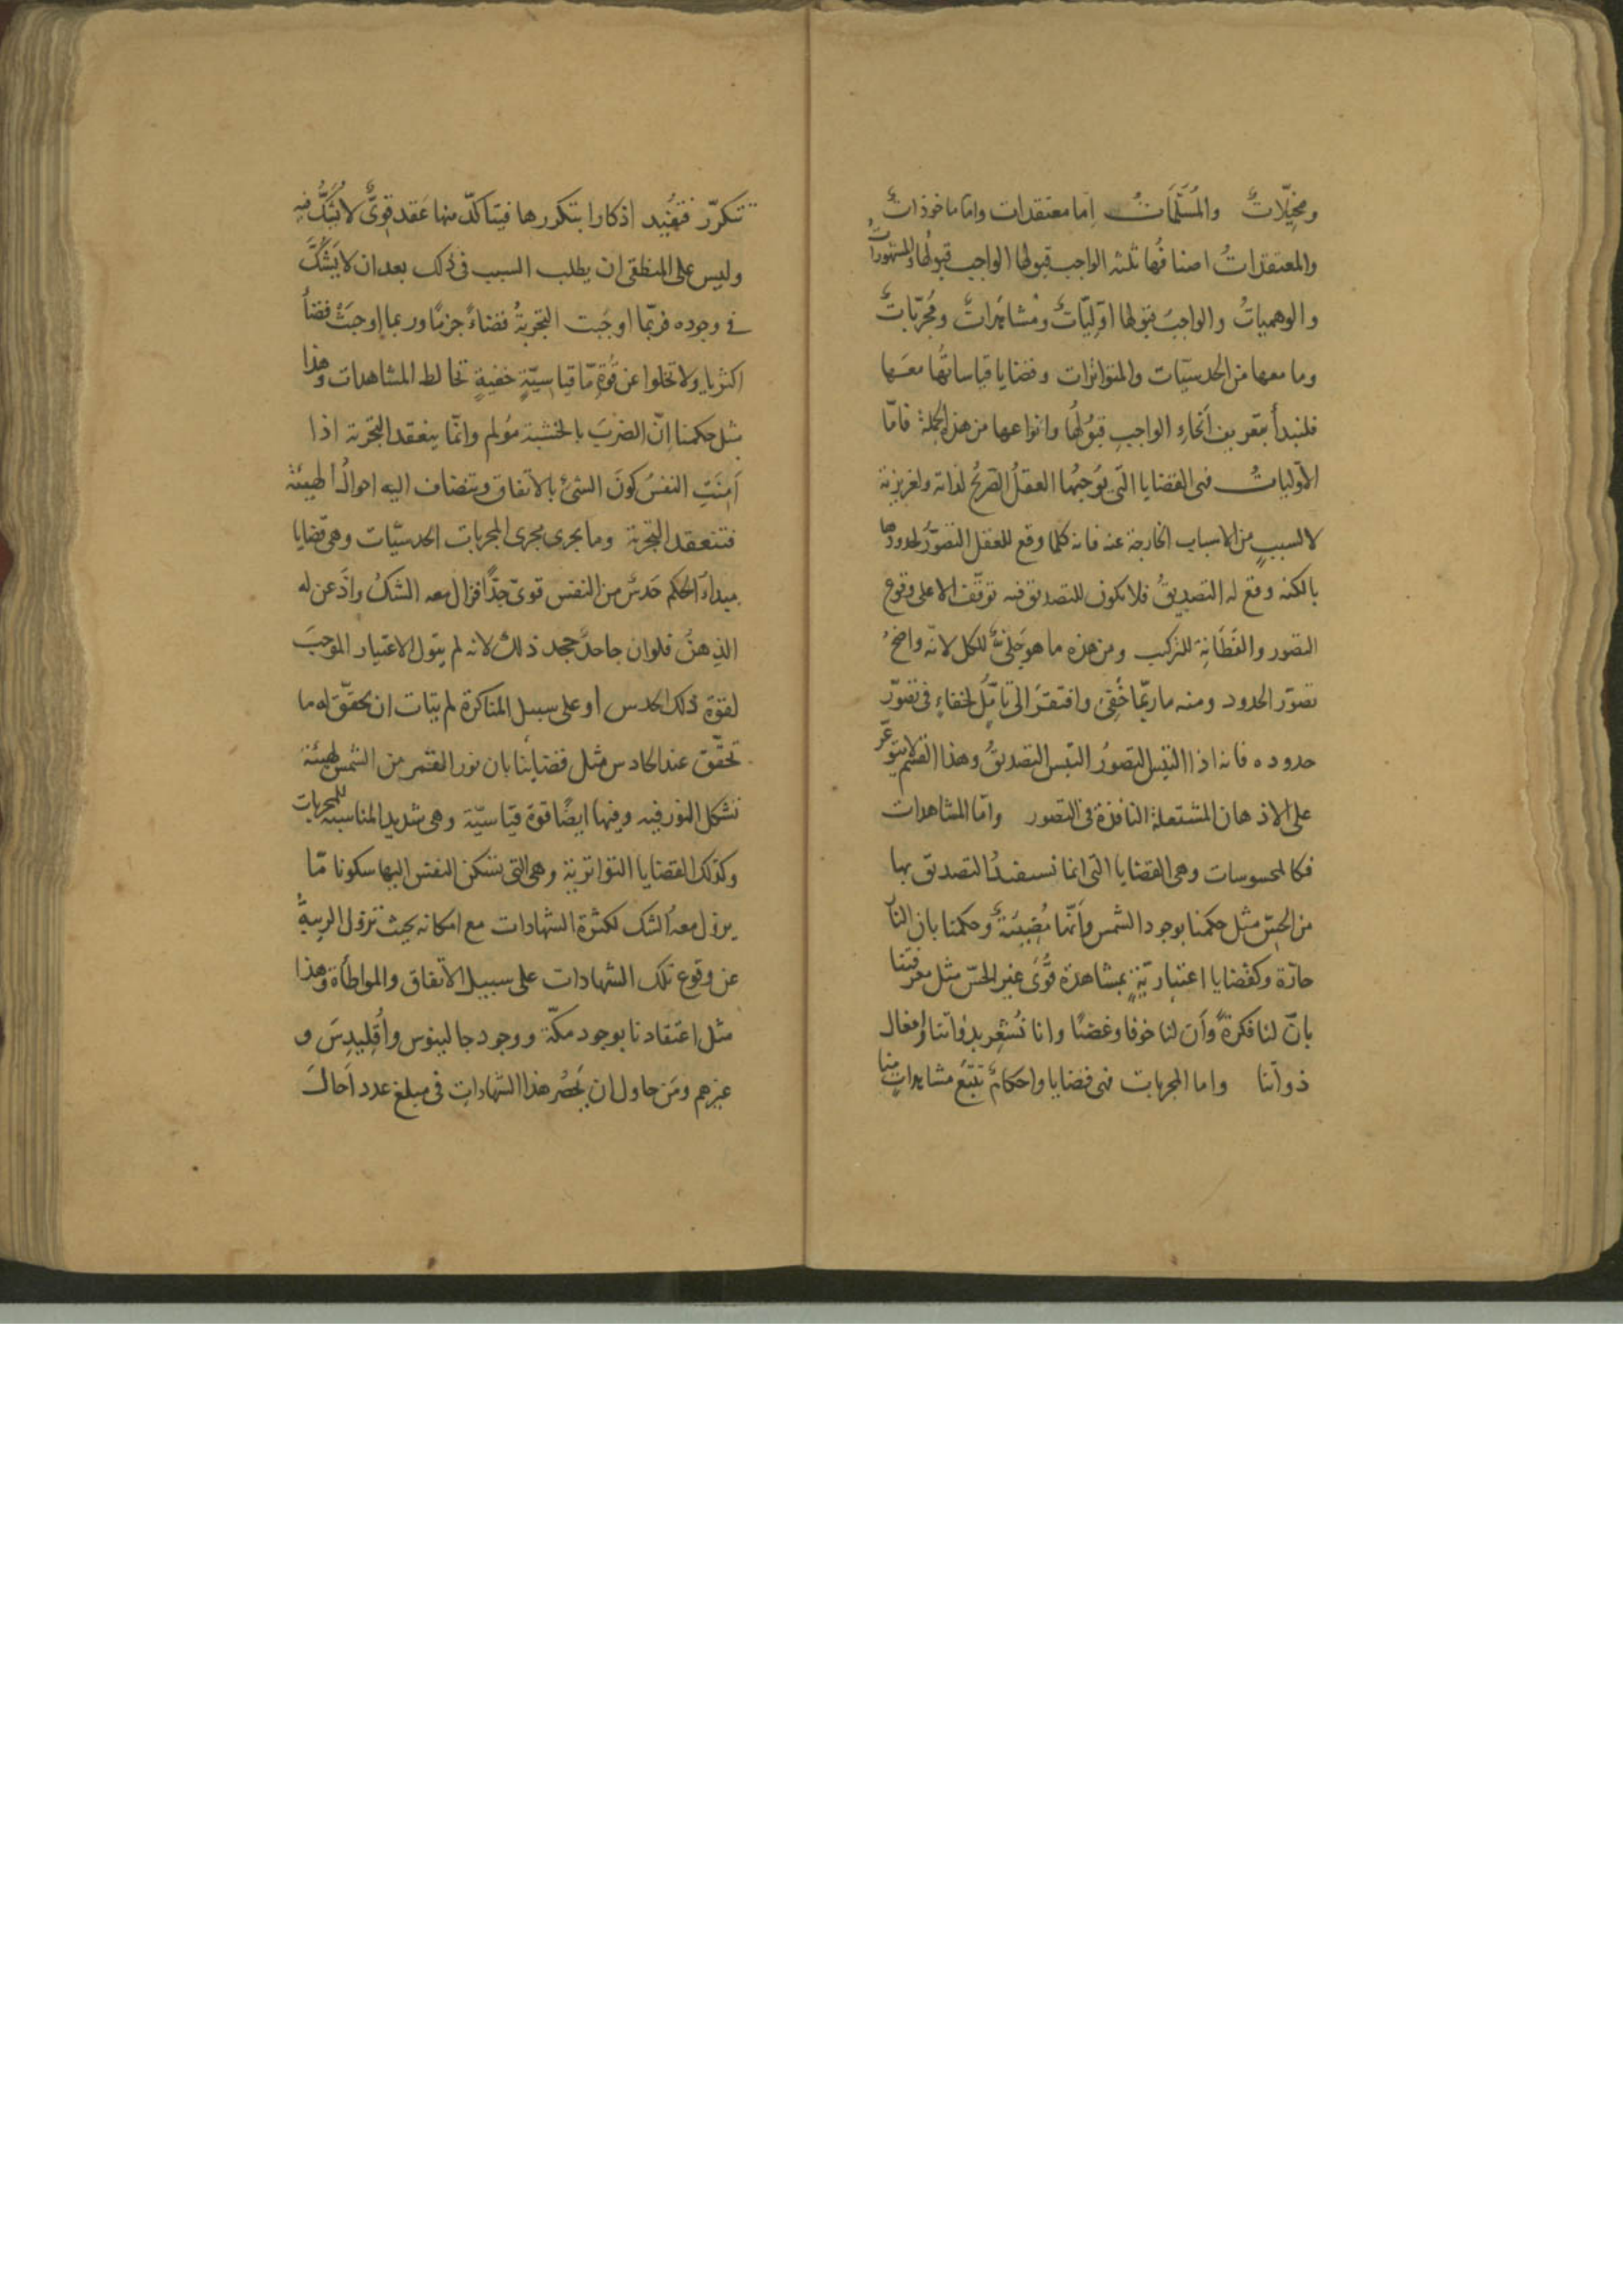 ومخيّلاتٌ والمُسَلَّمَاتُ اِما معتقدات واما ماخوذاتٌ
والمعتقداتُ اصنافُها ثلثه الواجب قبولها الواجب قبولُها والمشهوراتُ
والوهمياتُ والواجبُ قبولها اوّليّاتٌ ومُشاهَداتٌ ومُجَرّباتٌ
وما معها من الحدسيّات والمتواترات وقضايا قياساتُها معَها
فلنبدأ بتعريف اَنحاءِ الواجبِ قبوُلُها وانواعها من هذه الجملة فامّا
الاوّلياتُ فهى القضايا التى يُوجبُها العقلُ الصّريحُ لذاته ولغريزته
لا لسببٍ من الاسباب الخارجة عنه فانه كلما وقع للعقل التصوّرُ لحدودها
بالكنه وقع له التصديقُ فلا يكون للتصديق فيه توقّفٌ الا على وقوع
التصور والفَطَانةِ للتركيب ومن هذه ما هو جَلِىٌّ للكل لانّه واضحُ
تصوّر الحدود ومنه ما ربّما خَفِىَ وافتقرَ الى تامّلٍ لخفاءٍ فى تصوّر
حدوده فانه اذا التبسَ التصوُرُ التبس التصديقُ وهذا القسم لا يتوعّر
على الاذهان المشتعلة النافذة فى التصور واما المشاهدات
فكالمحسوسات وهى القضايا التى انما نستفيدُ التصديق بها
من الحِسّ مثل حكمنا بوجود الشمس وأنّها مُضِيئةٌ وحكمنا بان النار
حارّة وكقضايا اعتباريّةٍ بمشاهدة قُوًى غير الحسّ مثل معرفتنا
بانّ لنا فكرةً وأن لنا خوفا وغضبًا وانا نُشْعِر بذواتنا وافعال
ذواتنا واما المجربات فهى قضايا واحكامٌ تتبَع مشاهداتٍ منا
تتكرّر فتُفيد اذكارا بتكررها فيتاكّد منها عَقد قوِىٌّ لا يُشَكُّ فيه
وليس على المنطقى ان يطلب السبب فى ذلك بعد ان لا يَشُكَّ
فى وجوده فربّما اوجَبت التجربةُ قضاءً جزمًا وربما اوجبَتْ قضاءً
اكثريا ولا تخلوا عن قُوَّةٍ مّا قياسِيّةٍ خفيةٍ تخالط المشاهدات وهذا
مثل حكمنا اِنّ الضربَ بالخشبة مُولم وانّما ينعقد التجربة اذا
اَمِنَتِ النفسُ كونَ الشئ بالاتفاق وتنضاف اليه احوالُ الهيئة
فتنعقد التجربة وما يجرى مجرى المجربات الحدسيّات وهى قضايا
مبداء الحكم حَدسٌ من النفس قوىّ جدًّا فزال معه الشكُ واذعن له
الذِهنُ فلو ان جاحدًا جحد ذلك لانه لم يتول الاعتبار الموجبَ
لقوّة ذلك الحدس أو على سبيل المناكرة لم يتات ان يحقّق له ما
تحقّق عند الحادس مثل قضايانا بان نور القمر من الشمس لهيئة
تشكل النور فيه وفيها ايضًا قوة قياسيّة وهى شديد المناسبة للمجربات
وكذلك القضايا التواترية وهى التى تسكن النفس اليها سكونا مّا
يزول معه الشك لكثرة الشهادات مع امكانه بحيث تزول الريبةُ
عن وقوع تلك الشهادات على سبيل الاتفاق والمواطأة وهذا
مثل اعتقادنا بوجود مكّة ووجود جالينوس واُقلِيدِسَ و
غيرهم ومَن حاول ان يَحصُر هذا الشهاداتِ فى مبلغ عدد اَحالَ